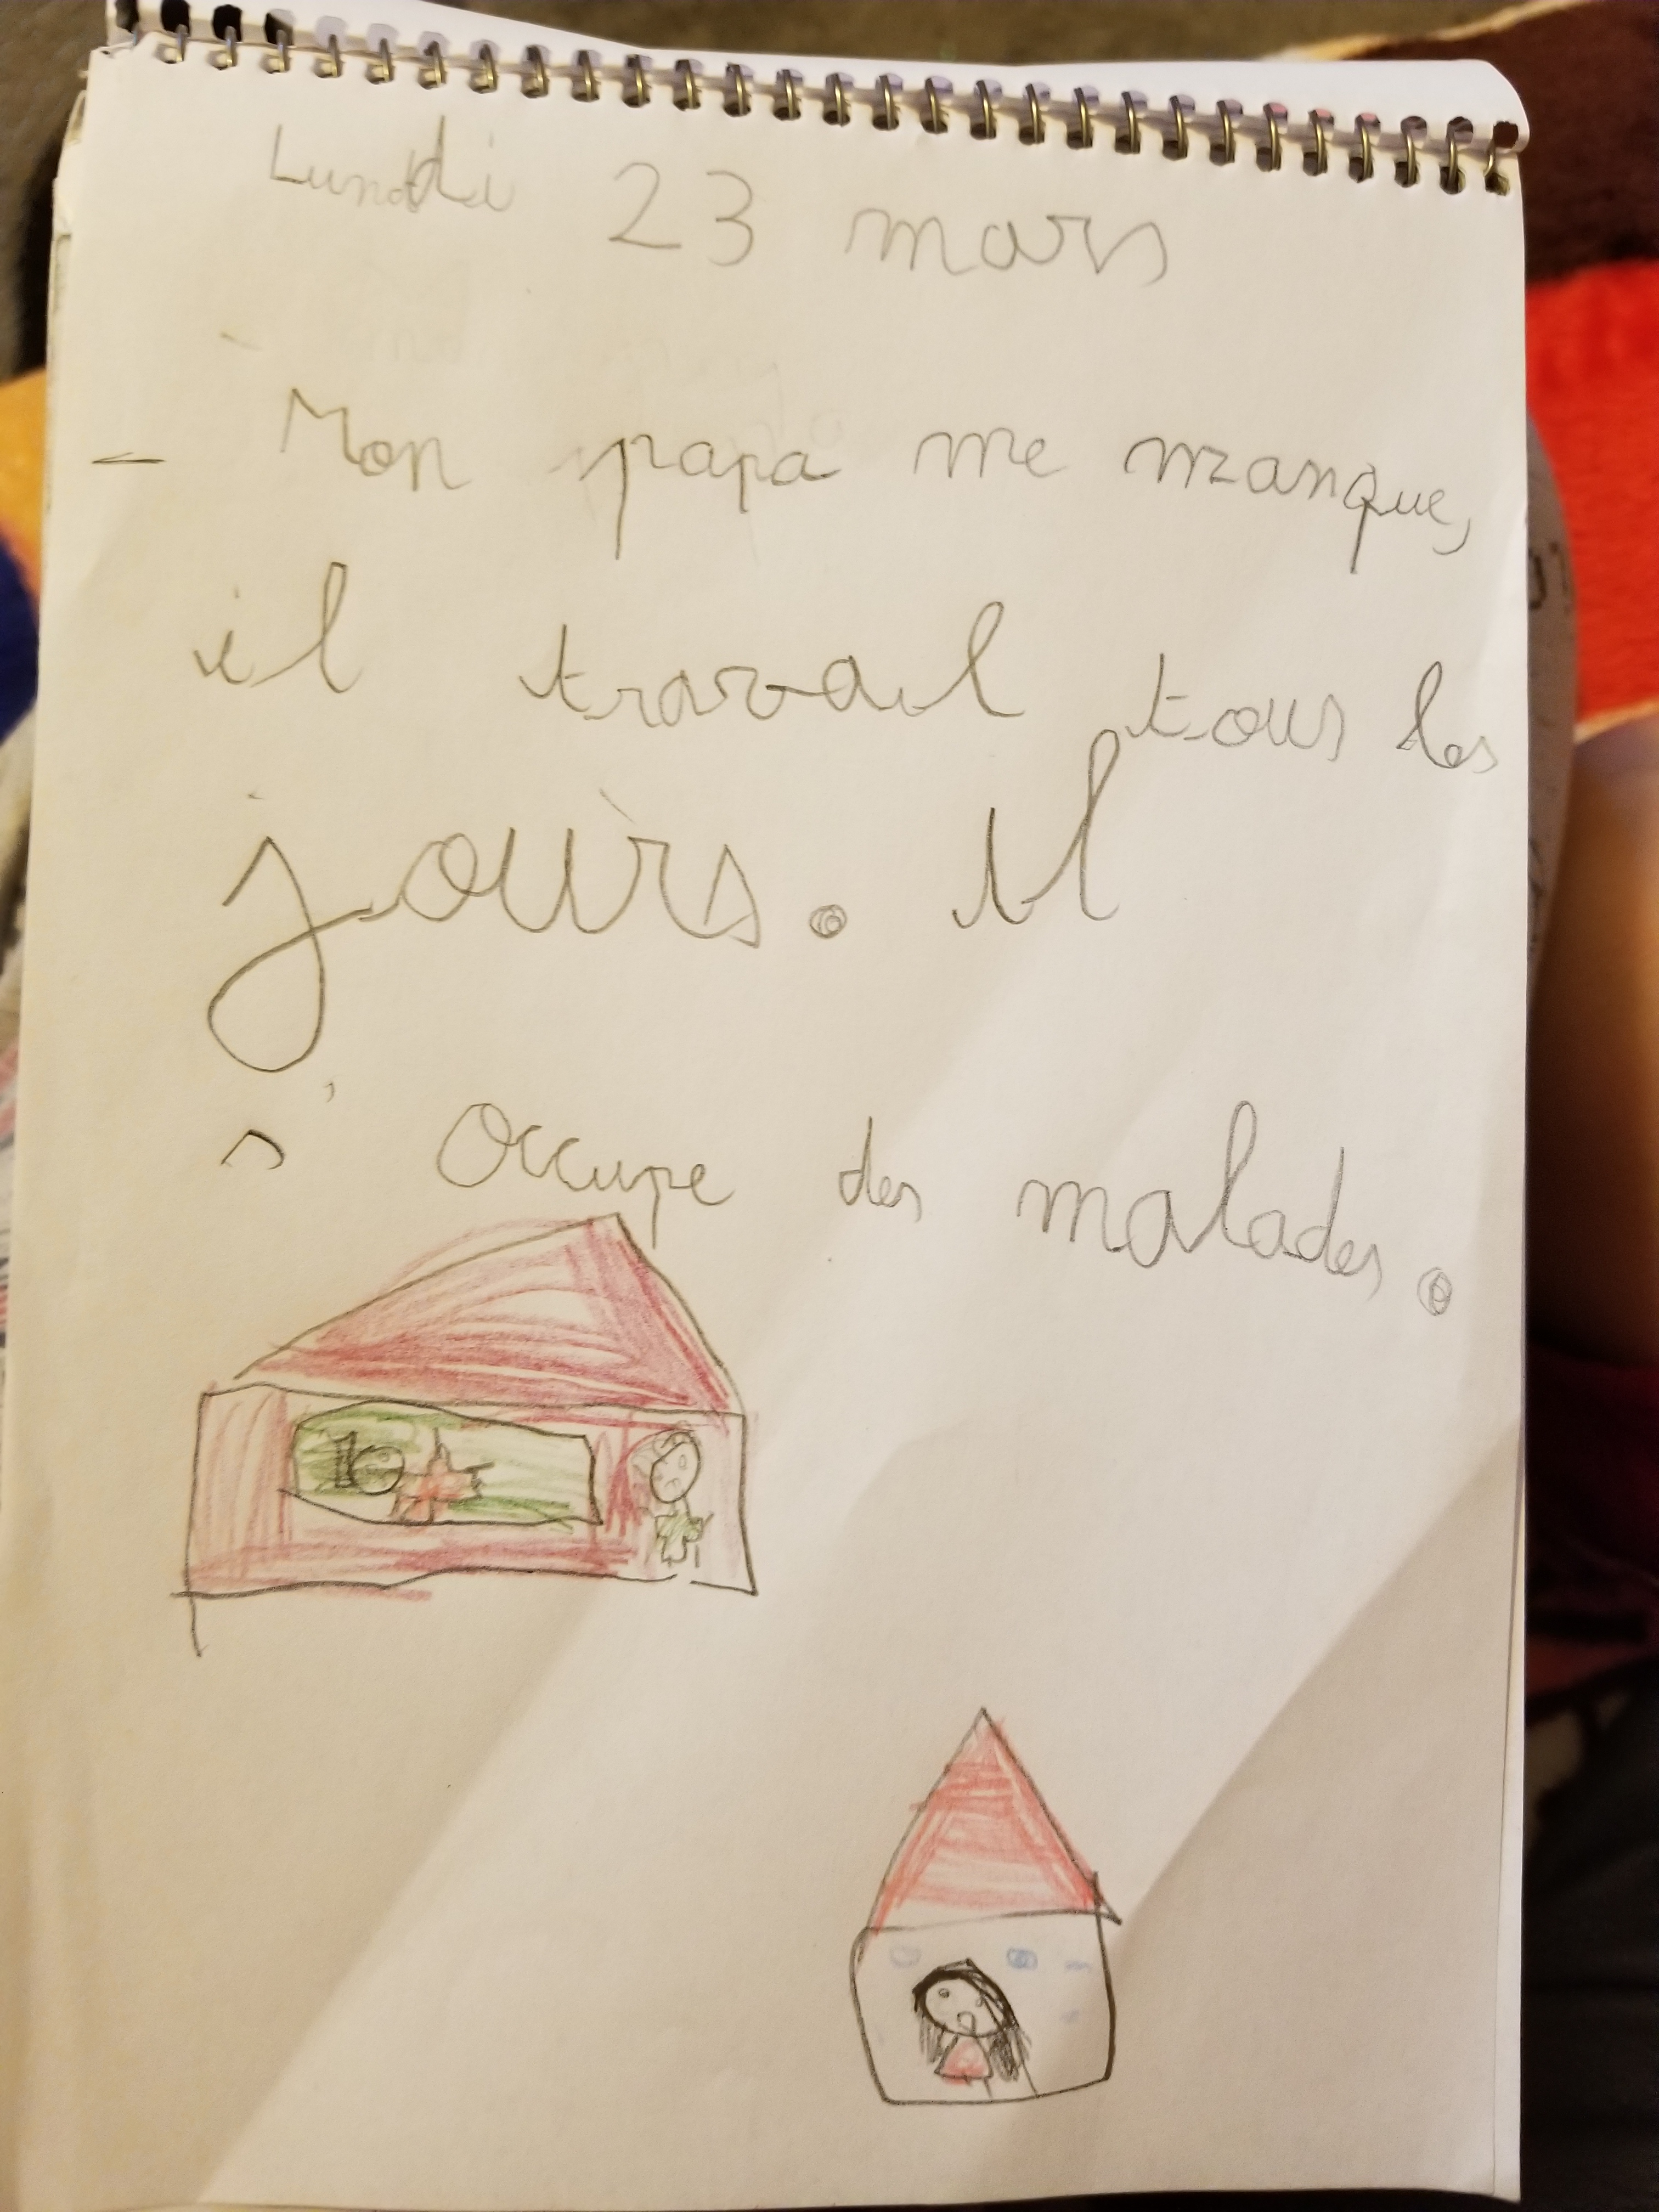 Lundi 23 mars
- Mon papa me manque,
il travail tous les
jours. il
s' occupe des malades.